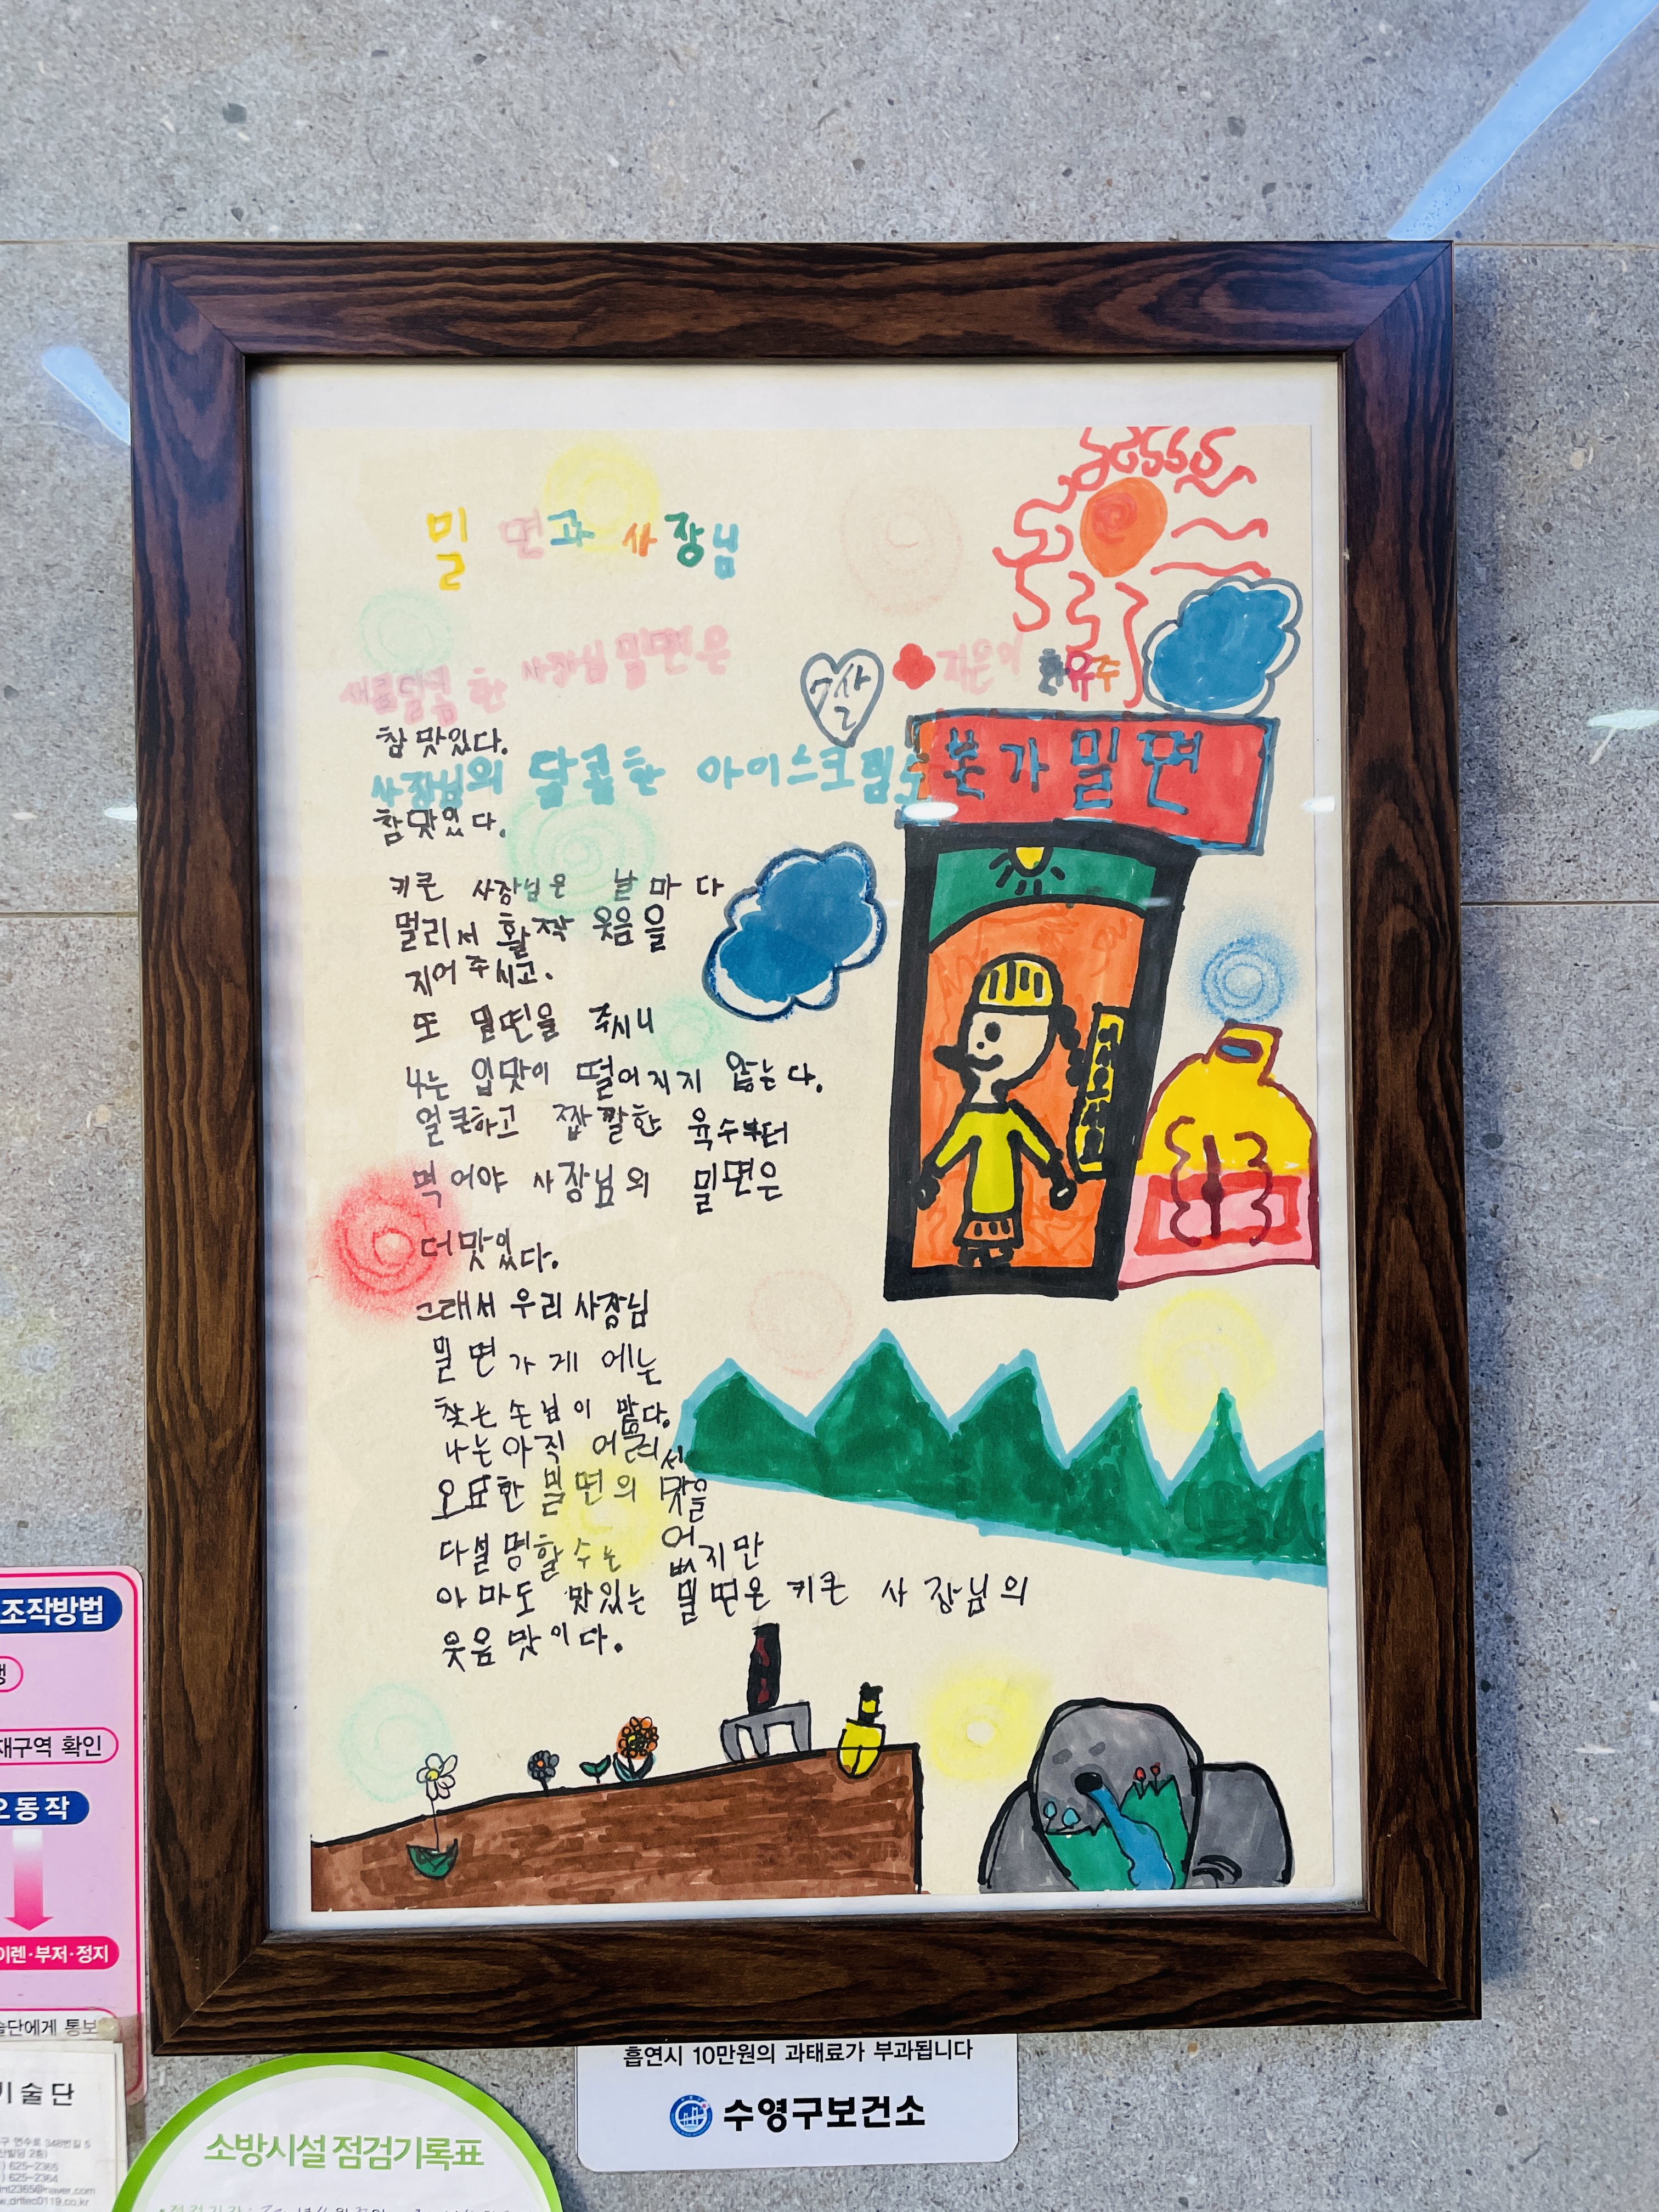 밀면과 사장님
새콤달콤 한 사장님 밀면은
7살
지은이 한유주
참 맛있다.
사장님의 달콤한 아이스크림도
본가밀면
참맛있다.
키큰 사장님은 날마다
멀리서 활짝 웃음을
지어 주시고.
또 밀면을 주시니
나는 입맛이 떨어지지 않는다.
얼큰하고 짭짤한 육수부터
먹어야 사장님의 밀면은
더맛있다.
그래서 우리 사장님
밀면가게에는
찾는 손님이 많다.
나는 아직 어려서
오묘한 밀면의 맛을
다설명할수는 없지만
아마도 맛있는 밀면은 키큰 사장님의
웃음맛이다.
조작방법
재구역 확인
오동작
이렌·부저·정지
술단에게 통보
기술단
구 연수로 348번길 5
625-2365
625-2364
흡연시 10만원의 과태료가 부과됩니다
수영구보건소
소방시설 점검기록표